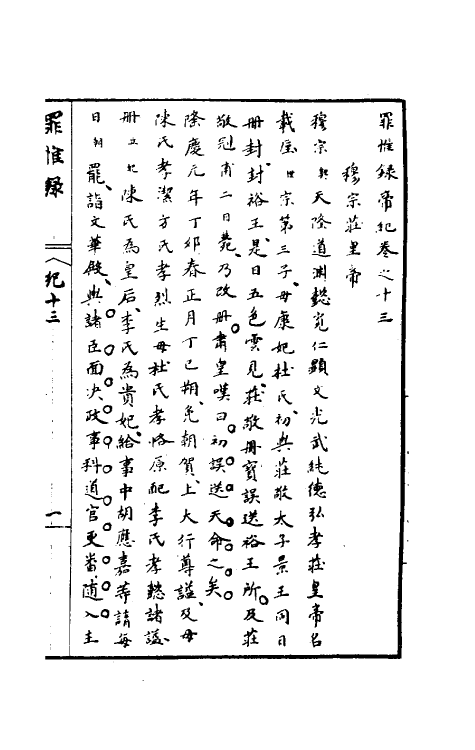 罪惟錄帝紀卷之十三
穆宗莊皇帝
穆宗契天隆道淵懿寬仁顯文光武純德弘孝莊皇帝名
載垕世宗第三子母康妃杜氏初與莊敬太子景王同日
册封封裕王是日五色雲見莊敬册寶誤送裕王所及莊
敬冠甫二日薨乃改册肅皇嘆曰初誤送天命之矣
隆慶元年丁卯春正月丁巳朔免朝賀上大行尊謚及母
陳氏孝潔方氏孝烈生母杜氏孝恪原配李氏孝懿諸謚
册立妃陳氏為皇后李氏為貴妃給事中胡應嘉等請每
日朝罷詣文華殿與諸臣面決政事科道官更番随入主
罪惟錄
紀十三
一